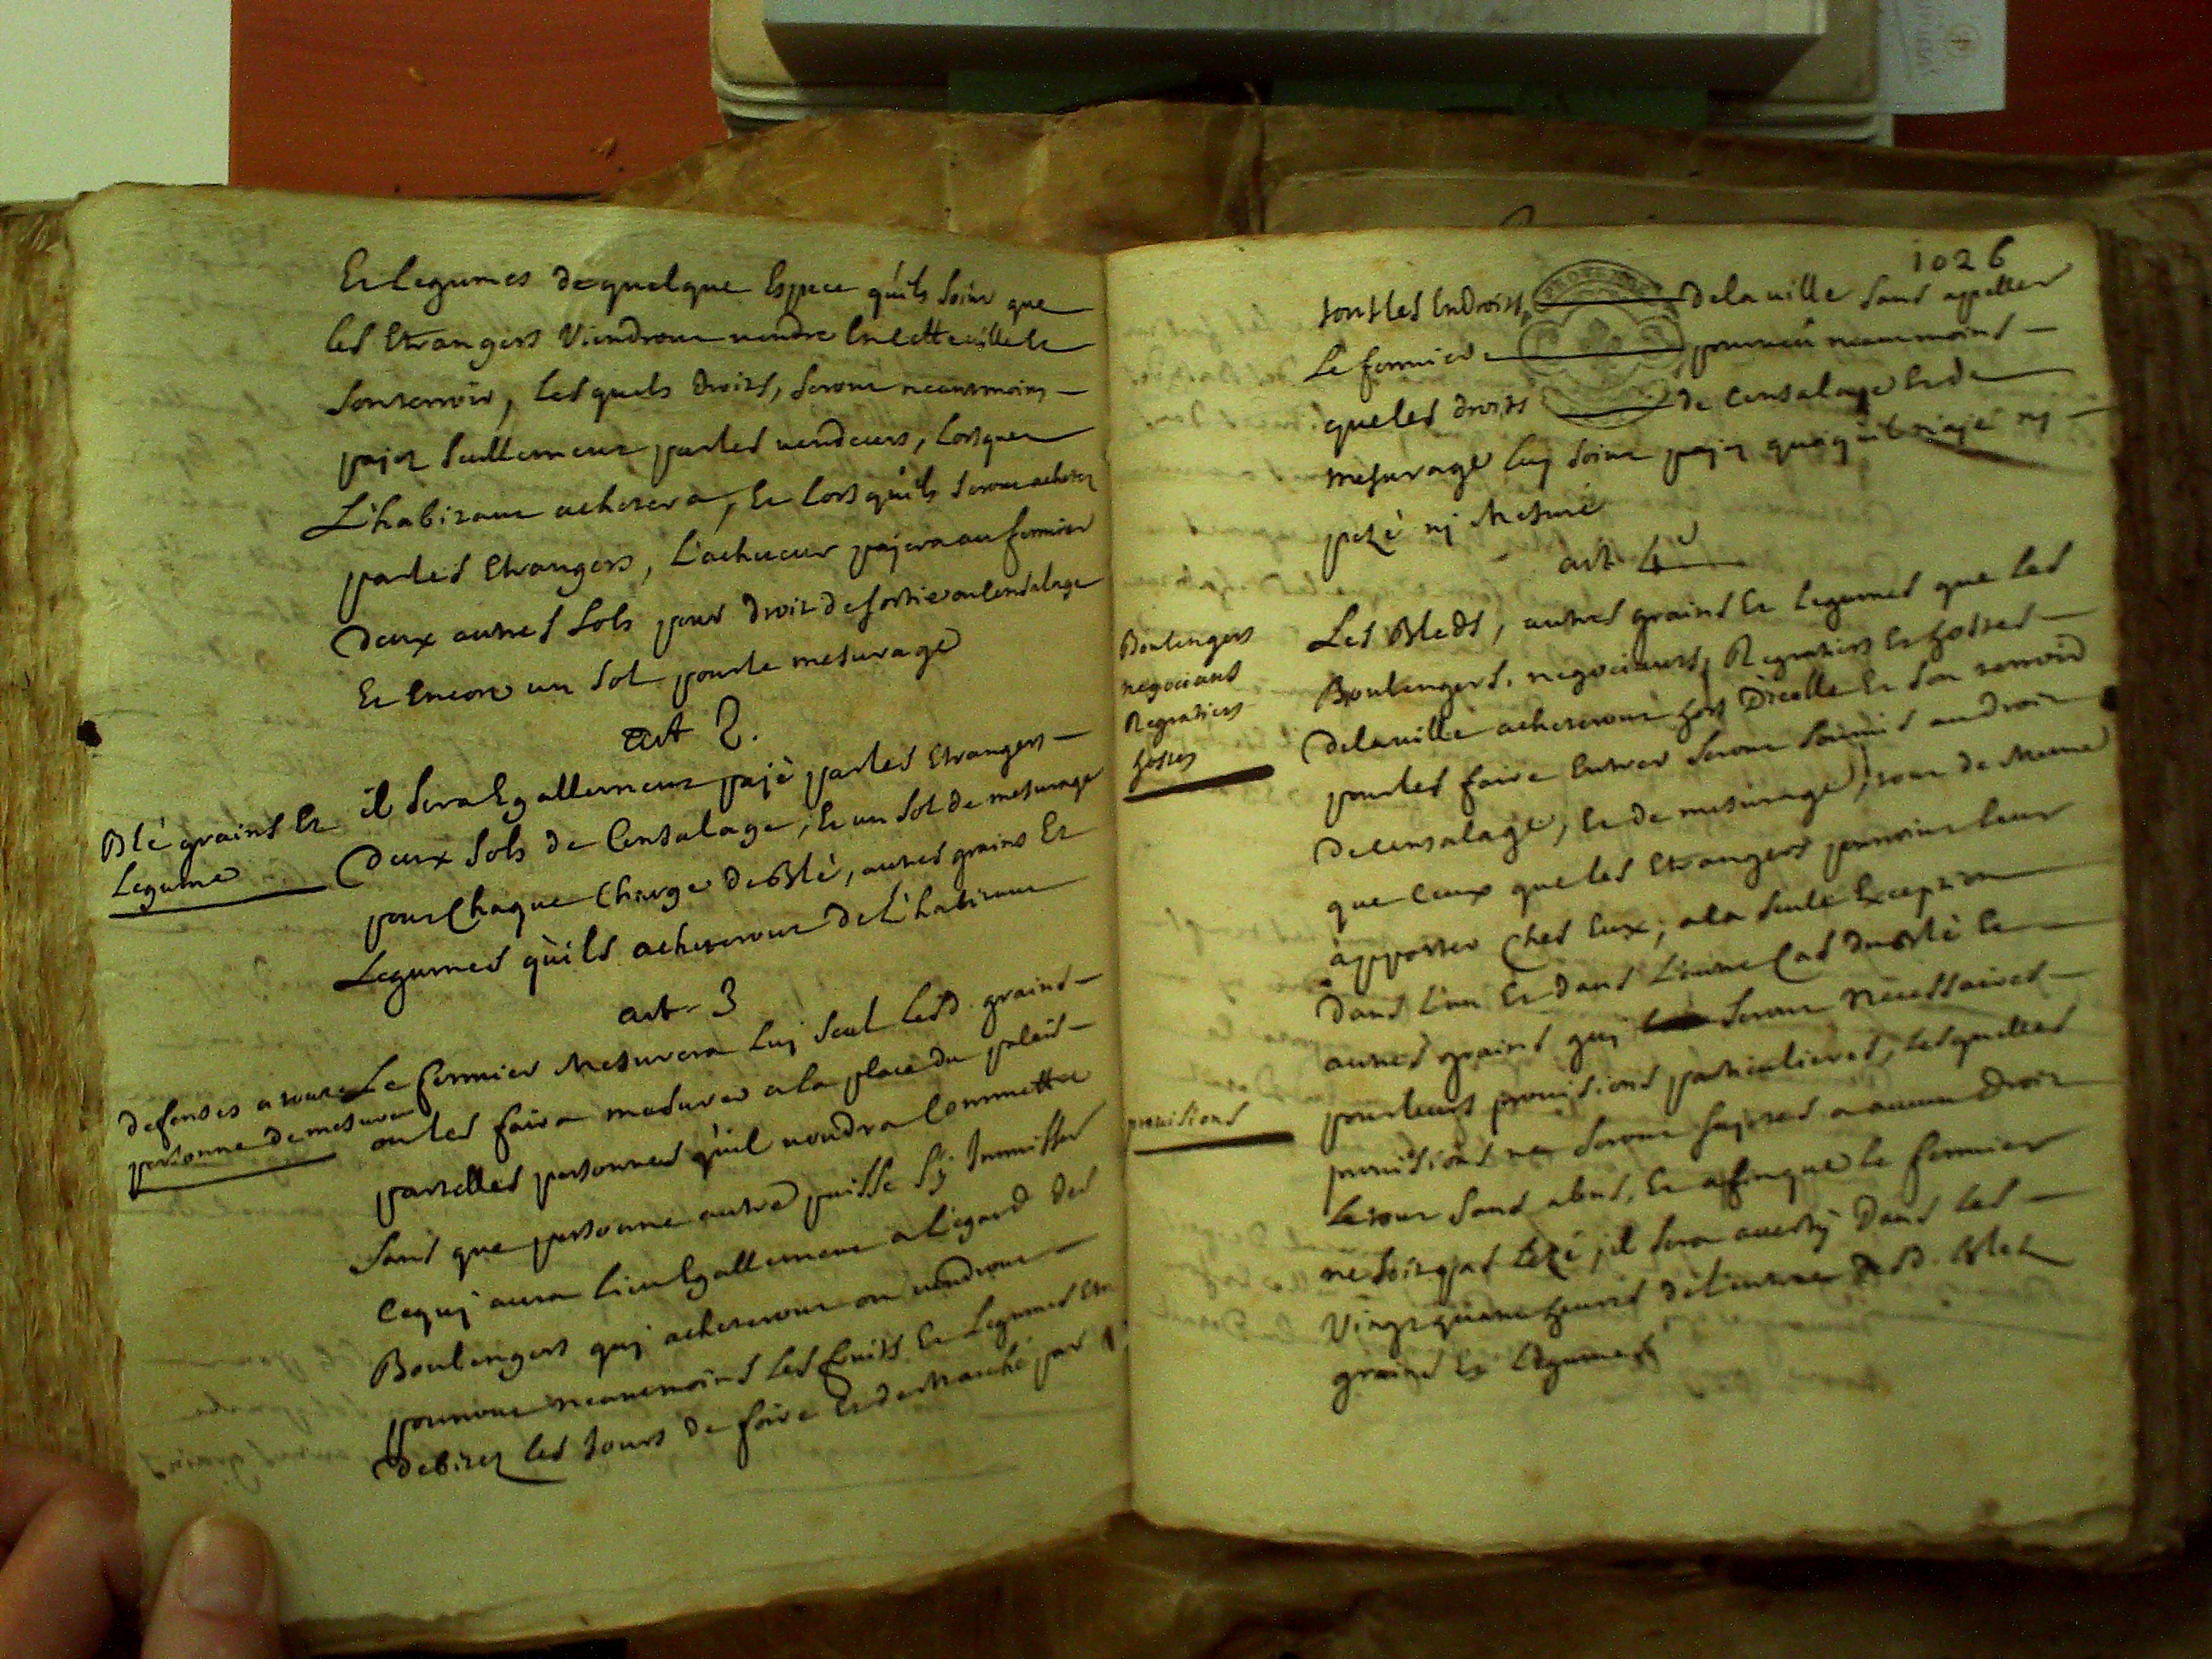 Et legumes de quelque Espece qu'ils soint que
les Etrangers Viendront vendre En cette ville Et
son terroir, Lesquels droits, seront neantmoins
payez seullement par les vendeurs, Lorsque
L'habitant achetera, Et Lors qu'ils seront achetez
par les Etrangers, L'acheteur payera au fermier
Deux autres sols pour droit de sortie ou Censalage
Et Encore un sol pour le mesurage
art 2.
Blé grains Et
Legume
il sera Egallement payé par les Etrangers
Deux sols de Censalage, Et un sol de mesurage
pour Chaque Charge de Blé, autres grains Et
Legumes qu'ils acheteront de L'habitant
art 3
defenses a toute
personne de mesurer
Le fermier Mesurera Luy seul Lesd. grains
ou les faira mesurer a la place du palais
par telles personnes qu'il voudra Commettre
sans que personne autre puisse s'y Immisser
Ce quy aura Lieu Egallement a L'egard des
Boulengers quy acheteront ou vendront
pourront neantmoins Les fruits Et Legumes
debitez les Jours de foire Et de Marché par
1026
tous Les Endroits de la ville sans appeller
Le fermier pourveu neantmoins
que les droits de Censalage Et de
mesurage luy soint payez quoiqu'il n'aje ny
pezé ny Mesuré
art 4e
Boulengers
negocians
Regratiers
hostes
Les Bleds, autres grains Et Legumes que Les
Boulengers, negociants, Regratiers Et hostes
de la ville acheteront hors D'icelle Et son terroir
pour les faire Entrer seront soumis au droit
de Censalage, Et de mesurage, tout de Meme
que Ceux que les Etrangers pourroint leur
apporter Ches Eux, a la seule Exception
Dans L'un Et Dans L'autre Cas du Blé Et
autres grains quy seront Necessaires
provisions
pour leurs provisions particulieres, Lesquelles
provisions ne seront sujetes a aucun Droit
Le tout sans abus, Et afin que le fermier
ne soit pas Lezé, il sera averty Dans Les
Vingt quatre heures de L'entrée desd. Bleds
grains Et Legumes